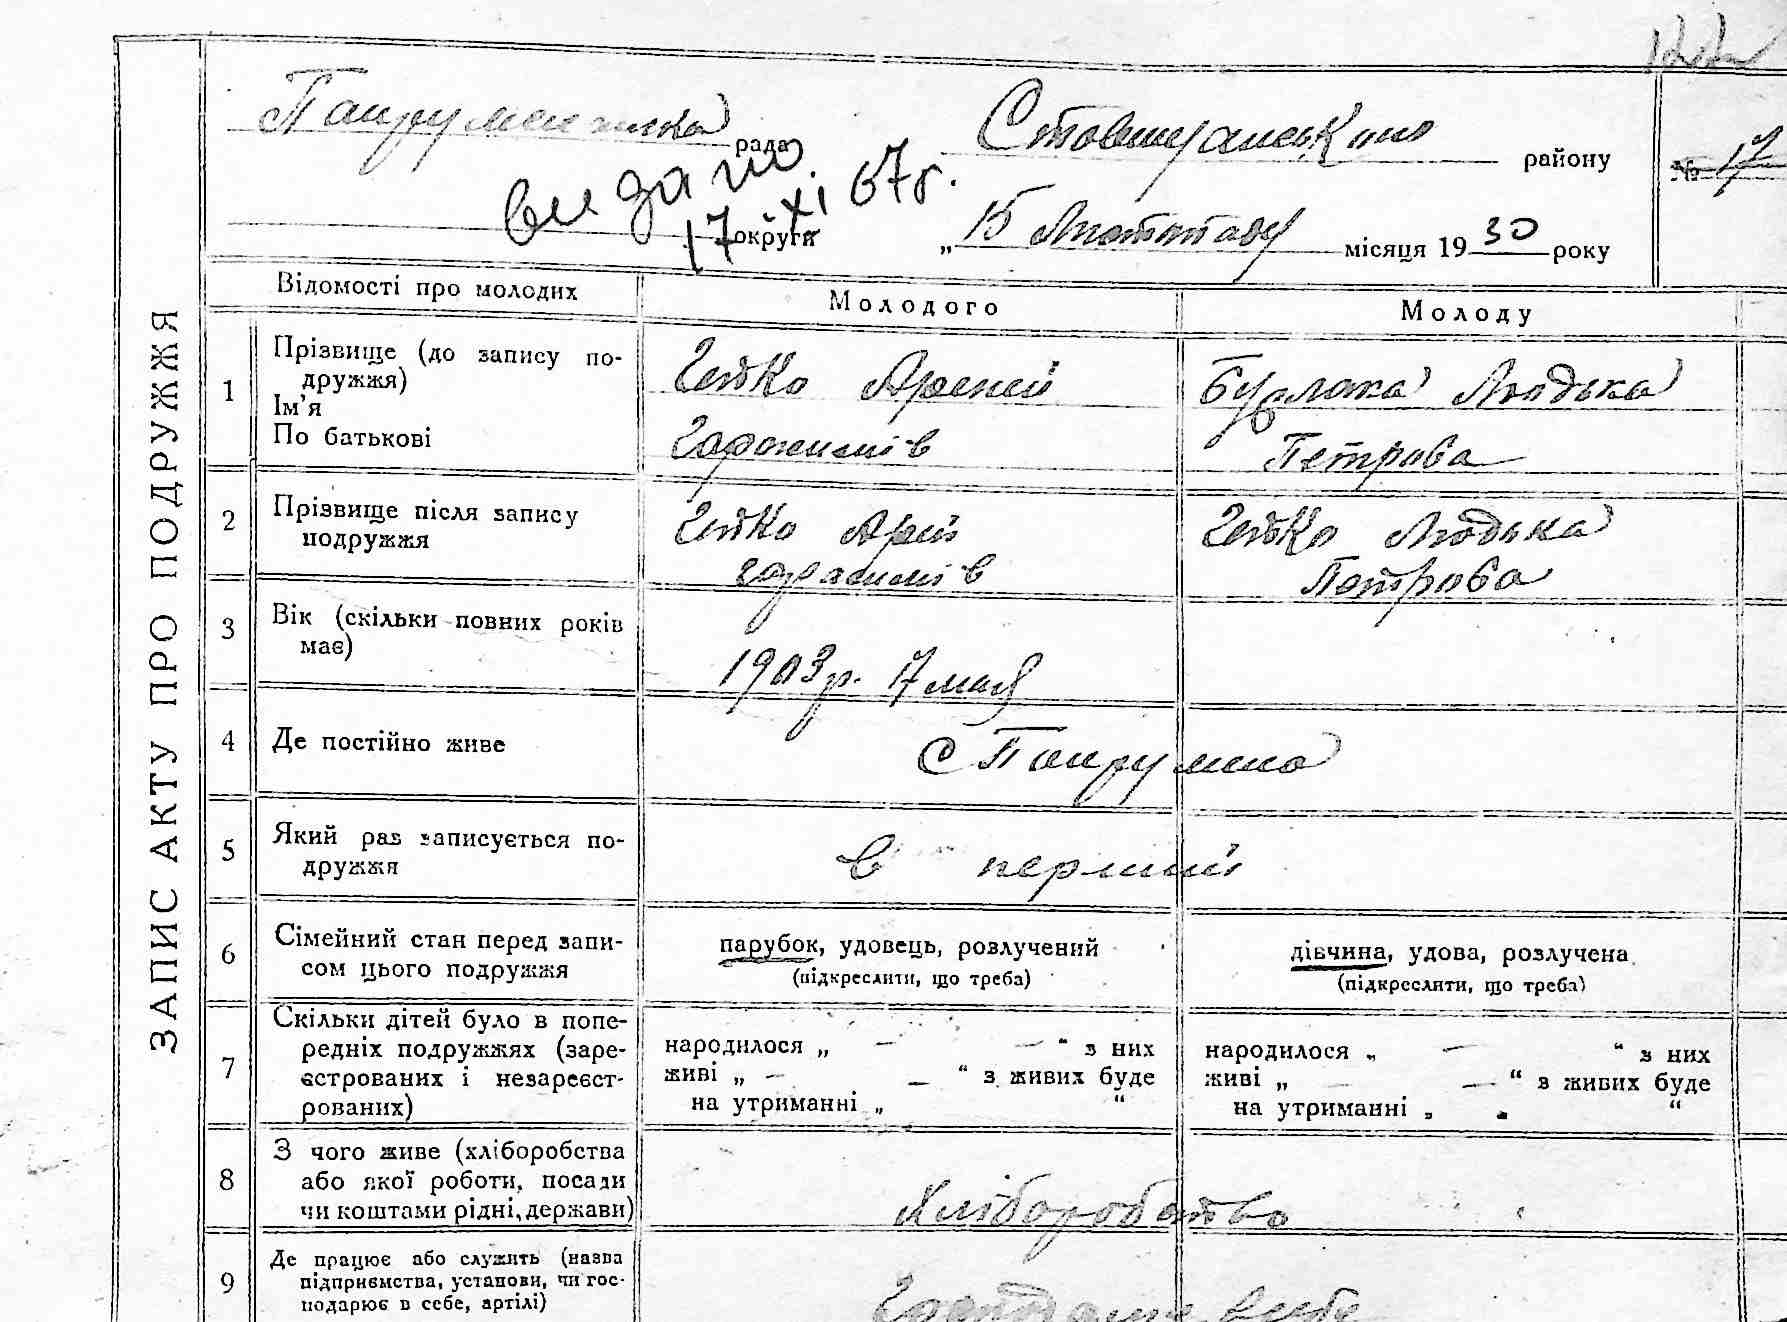 рада Ставищанського району № 17
видано
17 XI 67 г.
округи „15 Лютопаду місяця 1930 року
ЗАПИС АКТУ ПРО ПОДРУЖЖЯ
Відомості про молодих Молодого Молоду
1 Прізвище (до запису по-
дружжя)
Ім'я
По батькові
Гейко Арсеній Бурлака Людька
Петрова
2 Прізвище після запису
подружжя
Гейко Гейко Людька
Петрова
3 Вік (скільки повних років
має)
1903 р. 17 мая
4 Де постійно живе
с
5 Який раз записується по-
дружжя
в перший
6 Сімейний стан перед запи-
сом цього подружжя
парубок, удовець, розлучений дівчина, удова, розлучена
(підкреслити, що треба) (підкреслити, що треба)
7 Скільки дітей було в попе-
редніх подружжях (заре-
єстрованих і незареєст-
рованих)
народилося „ — — “ з них народилося „ — “ з них
живі „ — — “ з живих буде живі „ — — “ з живих буде
на утриманні „ “ на утриманні „ “
8 З чого живе (хліборобства
або якої роботи, посади
чи коштами рідні, держави)
Хліборобство
9 Де працює або служить (назва
підприємства, установи, чи гос-
подарює в себе, артілі)